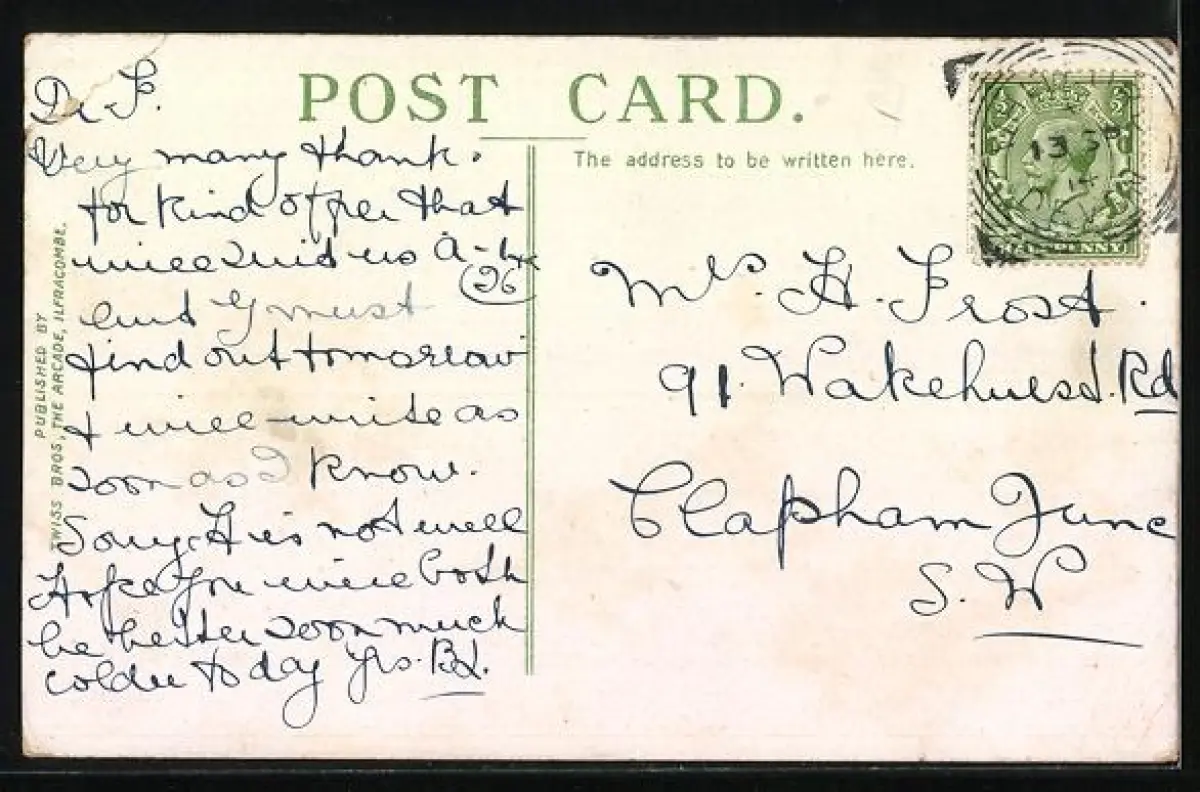 POST CARD.
The address to be written here.
PUBLISHED BY
TWISS BROS, THE ARCADE, ILFRACOMBE.
Dr F.
Very many thank.
for kind offer that
will suid us A-1
(26
but I must
find out tomorrow
& will write as
soon as I know.
Sorry H is not well
Hope you will both
be better soon much
colder to day Yrs. BL.
Mrs. H. Frost.
91. Wakehurst. Rd
Clapham Junc
S. W
13 SP
14
DEVON
PENNY